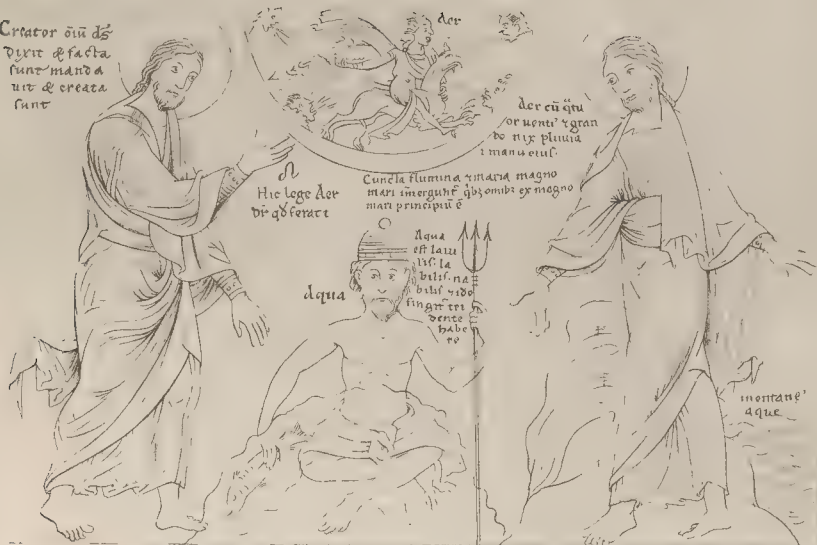 Creator oīū ds̄
dixit & facta
sunt manda
uit & creata
sunt
Aer
Aer cū q̄tu
or uenti' ⁊ gran
do nix pluuia
ī manu eius.
Hic lege Aer
Cuncta flumina ⁊ maria magno
mari īmergunt' q̄bȝ omibȝ ex magno
mari principiū ē
Aqua
Aqua
est laui
lis. la
bilis. na
bilis ⁊ ido
tri
dente
habe
re
montane'
aque